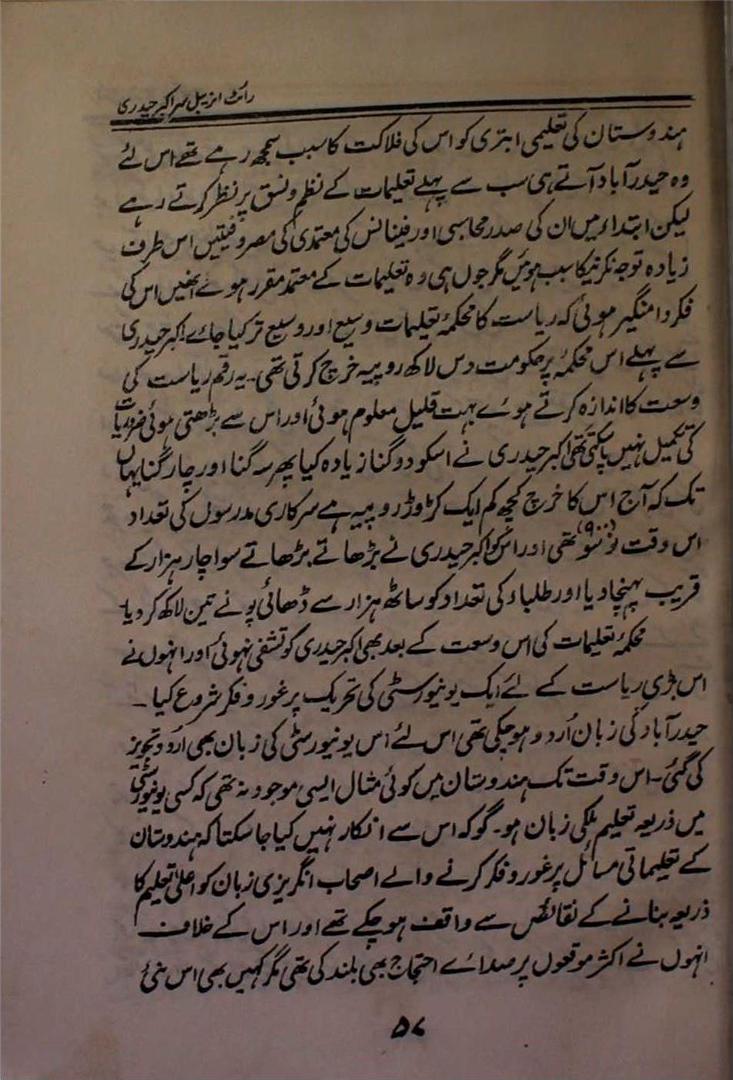 رائٹ انریبل سر اکبر حیدری
ہندوستان کی تعلیمی ابتری کو اس کی فلاکت کا سبب سمجھ رہے تھے اس لئے
وہ حیدرآباد آتے ہی سب سے پہلے تعلیمات کے نظم و نسق پر نظر کرتے رہے
لیکن ابتداء میں ان کی صدر محاسبی اور فینانس کی معتمدی کی مصروفیتیں اس طرف
زیادہ توجہ نکرنیکا سبب ہوئیں مگر جوں ہی وہ تعلیمات کے معتمد مقرر ہوئے انھیں اس کی
فکر دامنگیر ہوئی کہ ریاست کا محکمۂ تعلیمات وسیع اور وسیع تر کیا جائے اکبر حیدری
سے پہلے اس محکمۂ پر حکومت دس لاکھ روپیہ خرچ کرتی تھی۔ یہ رقم ریاست کی
وسعت کا اندازہ کرتے ہوئے بہت قلیل معلوم ہوئی اور اس سے بڑھتی ہوئی ضروریات
کی تکمیل نہیں پاسکتی تھی اکبر حیدری نے اسکو دوگنا زیادہ کیا پھر سہ گنا اور چار گنا یہاں
تک کہ آج اس کا خرچ کچھ کم ایک کڑوڑ روپیہ ہے سرکاری مدرسوں کی تعداد
اس وقت نو سو (۹۰۰) تھی اور اس کو اکبر حیدری نے بڑھاتے بڑھاتے سوا چار ہزار کے
قریب پہنچا دیا اور طلباء کی تعداد کو ساٹھ ہزار سے ڈھائی پونے تین لاکھ کر دیا۔
محکمۂ تعلیمات کی اس وسعت کے بعد بھی اکبر حیدری کو تشفی نہوئی اور انہوں نے
اس بڑی ریاست کے لئے ایک یونیورسٹی کی تحریک پر غور و فکر شروع کیا۔
حیدرآباد کی زبان اُردو ہو چکی تھی اس لئے اس یونیورسٹی کی زبان بھی اردو تجویز
کی گئی۔ اس وقت تک ہندوستان میں کوئی مثال ایسی موجود نہ تھی کہ کسی یونیورسٹی
میں ذریعہ تعلیم ملکی زبان ہو۔ گو کہ اس سے انکار نہیں کیا جا سکتا کہ ہندوستان
کے تعلیماتی مسائل پر غور و فکر کرنے والے اصحاب انگریزی زبان کو اعلیٰ تعلیم کا
ذریعہ بنانے کے نقائص سے واقف ہو چکے تھے اور اس کے خلاف
انہوں نے اکثر موقعوں پر صدائے احتجاج بھی بلند کی تھی مگر کہیں بھی اس نئی
۵۷